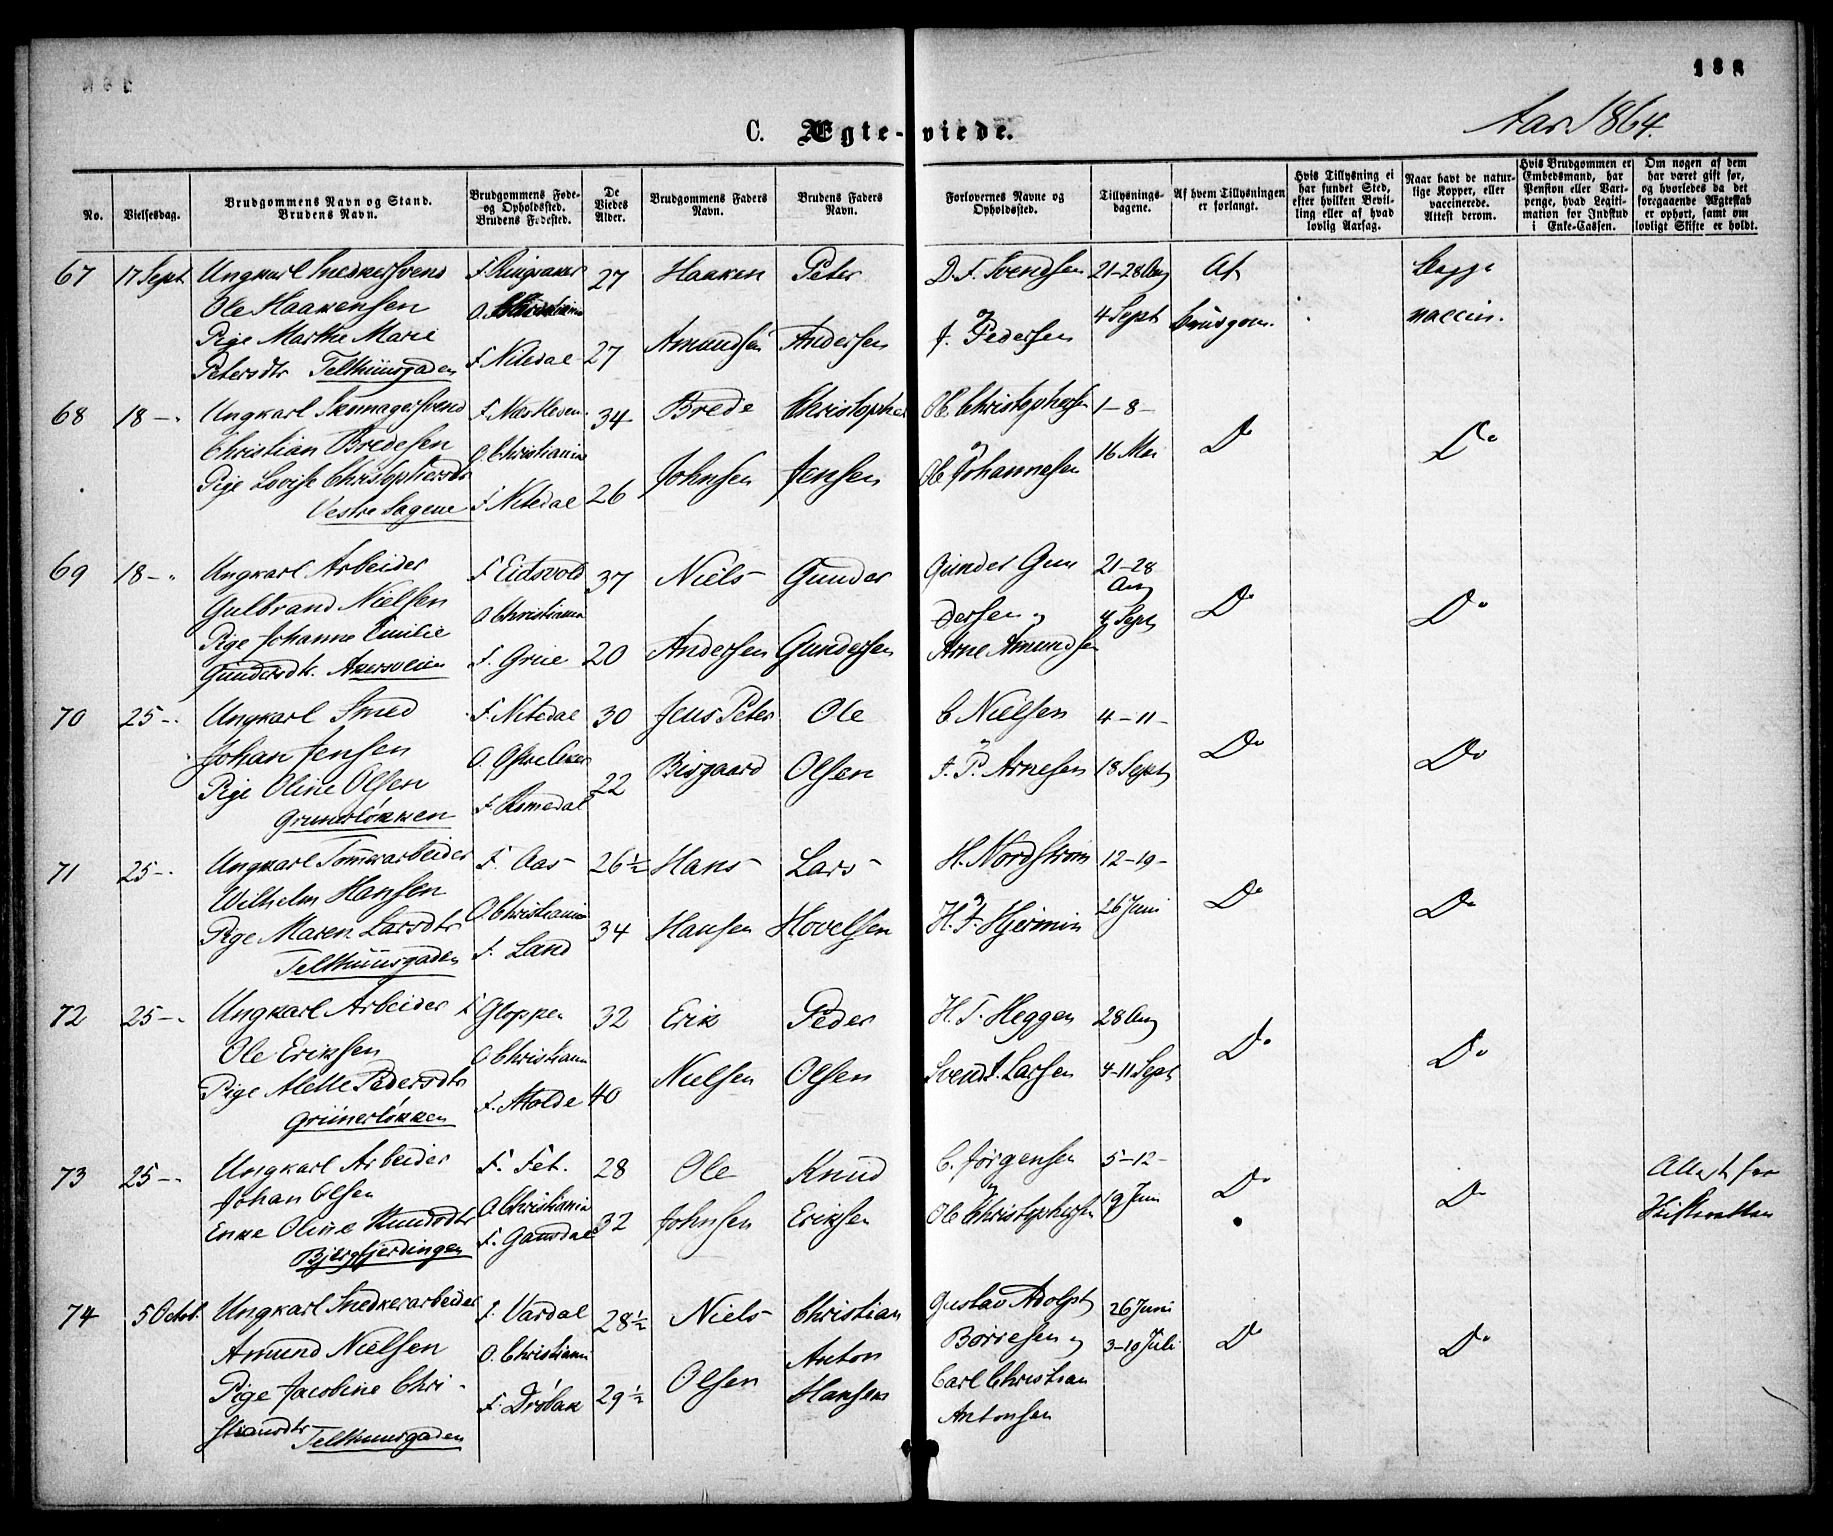 138
Aar 1864.
C. Ægte-viede.
No.
Vielsesdag.
Brudgommens Navn og Stand.
Brudens Navn.
Brudgommens Føde-
og Opholdssted.
Brudens Fødested.
De
Viedes
Alder.
Brudgommens Faders
Navn.
Brudens Faders
Navn.
Forlovernes Navne og
Opholdssted.
Tillysnings-
dagene.
Af hvem Tillysningen
er forlangt.
Hvis Tillysning ei
har fundet Sted,
efter hvilken Bevil-
ling eller af hvad
lovlig Aarsag.
Naar havt de natur-
lige Kopper, eller
vaccinerede.
Attest derom.
Hvis Brudgommen er
Embedsmand, har
Pension eller Vart-
penge, hvad Legiti-
mation for Indskud
i Enke-Cassen.
Om nogen af dem
har været gift før,
og hvorledes da det
foregaaende Ægteskab
er ophørt, samt om
lovligt Skifte er holdt.
67 17 Sept Ungkarl Snedkersvend F. Ringsaker 27 Haaken Peter D. F. Svendsen 21-28 Aug Af Begge
Ole Haakensen O. Christiania og 4 Sept brudgom. vaccin.
Pige Marthe Marie Amundsen Andersen J. Pedersen
Petersdtr Telthuusgaden F. Nitedal 27
68 18 -" Ungkarl Skomagersvend F. Næs Heden. 34 Brede Christopher Ole Christophersen 1-8-
Christian Bredesen O. Christiania og 16 Mai Do Do
Pige Lovise Christophersdtr Johnsen Jensen Ole Johannesen
Vestre Sagene F. Nitedal 26
69 18 -" Ungkarl Arbeider F. Eidsvold 37 Niels Gunder Gunder Gun 21-28
Aug
Gulbrand Nielsen O. Christiania dersen og 4 Sept Do Do
Pige Johanne Emilie F. Grue 20 Andersen Gundersen Arne Amundsen
Gundersdtr. Akersveien
70 25 -" Ungkarl Smed F. Nitedal 30 Jens Peter Ole C Nielsen 4-11-
Johan Jensen O. Østre Aker og Do Do
Pige Oline Olsen 22 Bisgaard Olsen F. P. Arnesen 18 Sept
Grunerløkken F. Romedal
71 25 -" Ungkarl Tømerarbeider F. Aas 26½ Hans Lars H. Nordstrøm 12-19-
Wilhelm Hansen O. Christiania og 26 Juni Do Do
Pige Maren Larsdtr 34 Hansen Hovelsen H. F. Hjermin
Telthuusgaden F. Land
72 25 -" Ungkarl Arbeider F Gloppen 32 Erik Peder H. T. Heggen 28 Aug
Ole Eriksen O. Christiania Do Do
Pige Alette Pedersdtr F. Molde 40 Nielsen Olsen Svend A. Larsen 4-11 Sept
Grünerløkken
73 25 -" Ungkarl Arbeider F. Fet. 28 Ole Knud C. Jørgensen 5-12- Attest fra
Johan Olsen O. Christiania og Do Do Skifteretten
Enke Oline Knudsdtr 32 Johnsen Eriksen Ole Christophersen 19 Juni
Bjergfjerdingen F. Gausdal
74 5 Octob. Ungkarl Snedkerarbeider F. Vardal 28½ Niels Christian Gustav Adolph 26 Juni
Amund Nielsen O. Christiania Anton Børresen og 3-10 Juli Do Do
Pige Jacobine Chri- F. Drøbak 29½ Olsen Hansen Carl Christian
stiansdtr Telthuusgaden Antonsen